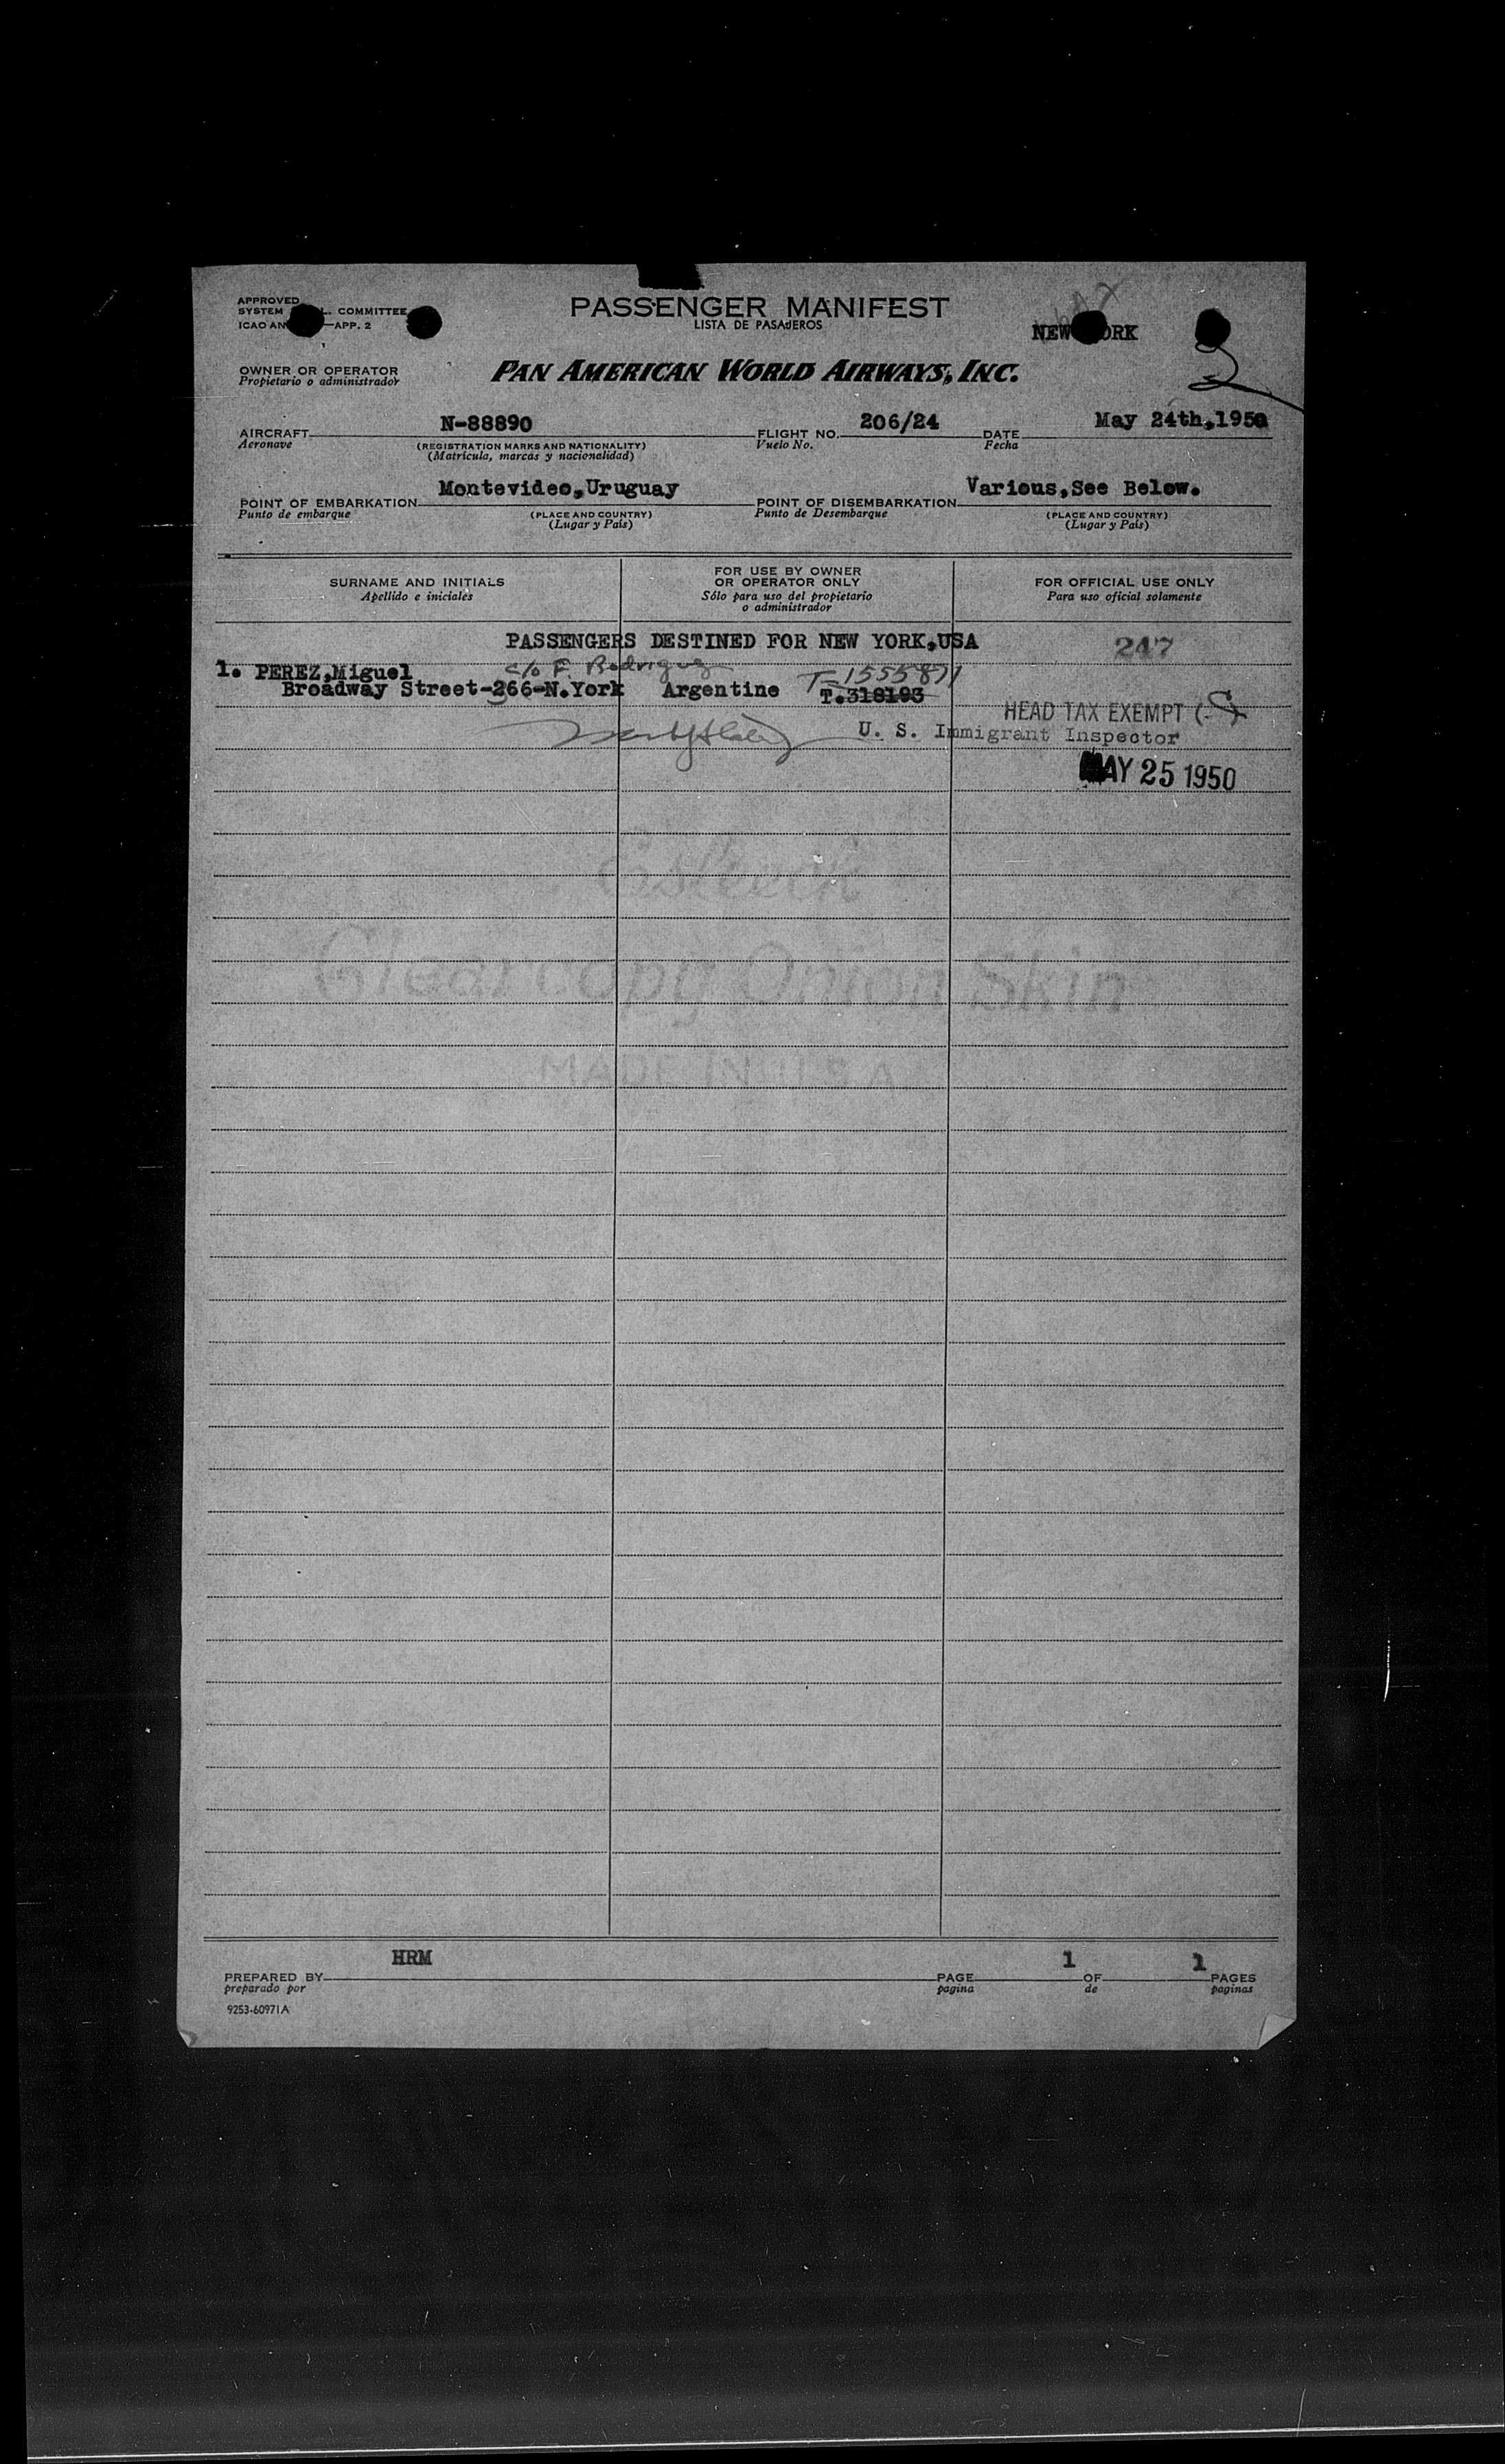 APPROVED
SYSTEM L. COMMITTEE
ICAO AN —APP. 2
PASSENGER MANIFEST
LISTA DE PASAJEROS
NEW ORK
2
OWNER OR OPERATOR
Propietario o administrador
PAN AMERICAN WORLD AIRWAYS, INC.
AIRCRAFT N-88890 FLIGHT NO. 206/24 DATE May 24th,1950
Aeronave (REGISTRATION MARKS AND NATIONALITY) Vuelo No. Fecha
(Matrícula, marcas y nacionalidad)
POINT OF EMBARKATION Montevideo,Uruguay POINT OF DISEMBARKATION Various,See Below.
Punto de embarque (PLACE AND COUNTRY) Punto de Desembarque (PLACE AND COUNTRY)
(Lugar y País) (Lugar y País)
SURNAME AND INITIALS
Apellido e iniciales
FOR USE BY OWNER
OR OPERATOR ONLY
Sólo para uso del propietario
o administrador
FOR OFFICIAL USE ONLY
Para uso oficial solamente
PASSENGERS DESTINED FOR NEW YORK,USA 247
1. PEREZ,Miguel c/o F. Rodriguez T-1555871
Broadway Street-266-N.York Argentine T.318193
HEAD TAX EXEMPT
U. S. Immigrant Inspector
MAY 25 1950
Esleeck
Clearcopy Onion Skin
MADE IN U S A
PREPARED BY HRM PAGE 1 OF 1 PAGES
preparado por pagina de paginas
9253-60971A